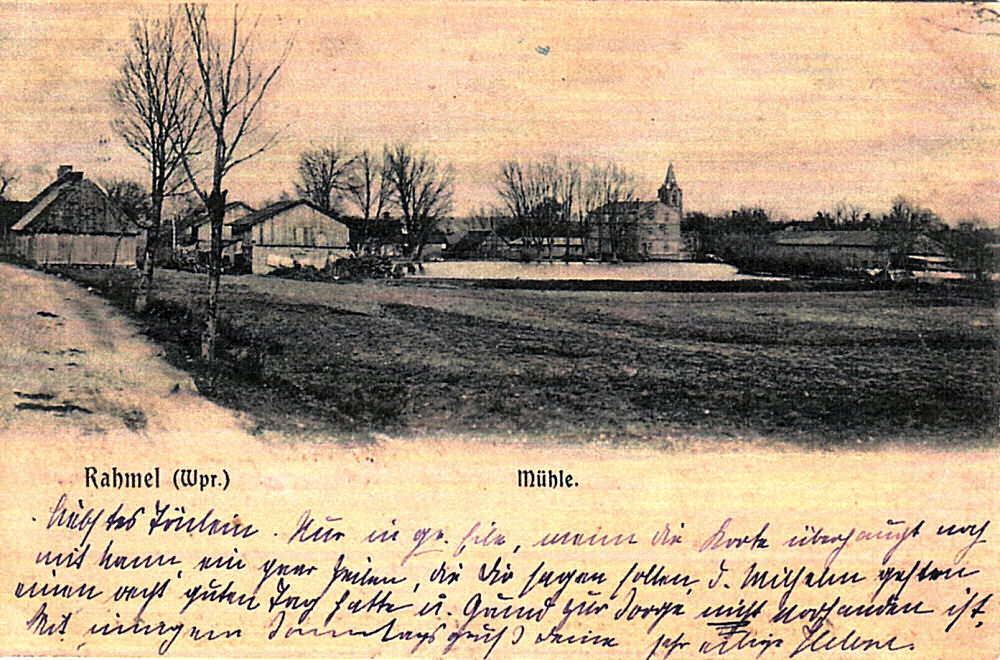 Rahmel (Wpr.)
Mühle.
Liebstes Fräulein. Nur in gr. Eile, wenn die Karte überhaupt noch
mit kann, ein paar Zeilen, die Dir sagen sollen, d. Wilhelm gestern
einen recht guten Tag hatte u. Grund zur Sorge nicht vorhanden ist.
Mit innigem Sonntagsgruß Deine sehr eilige Helene.